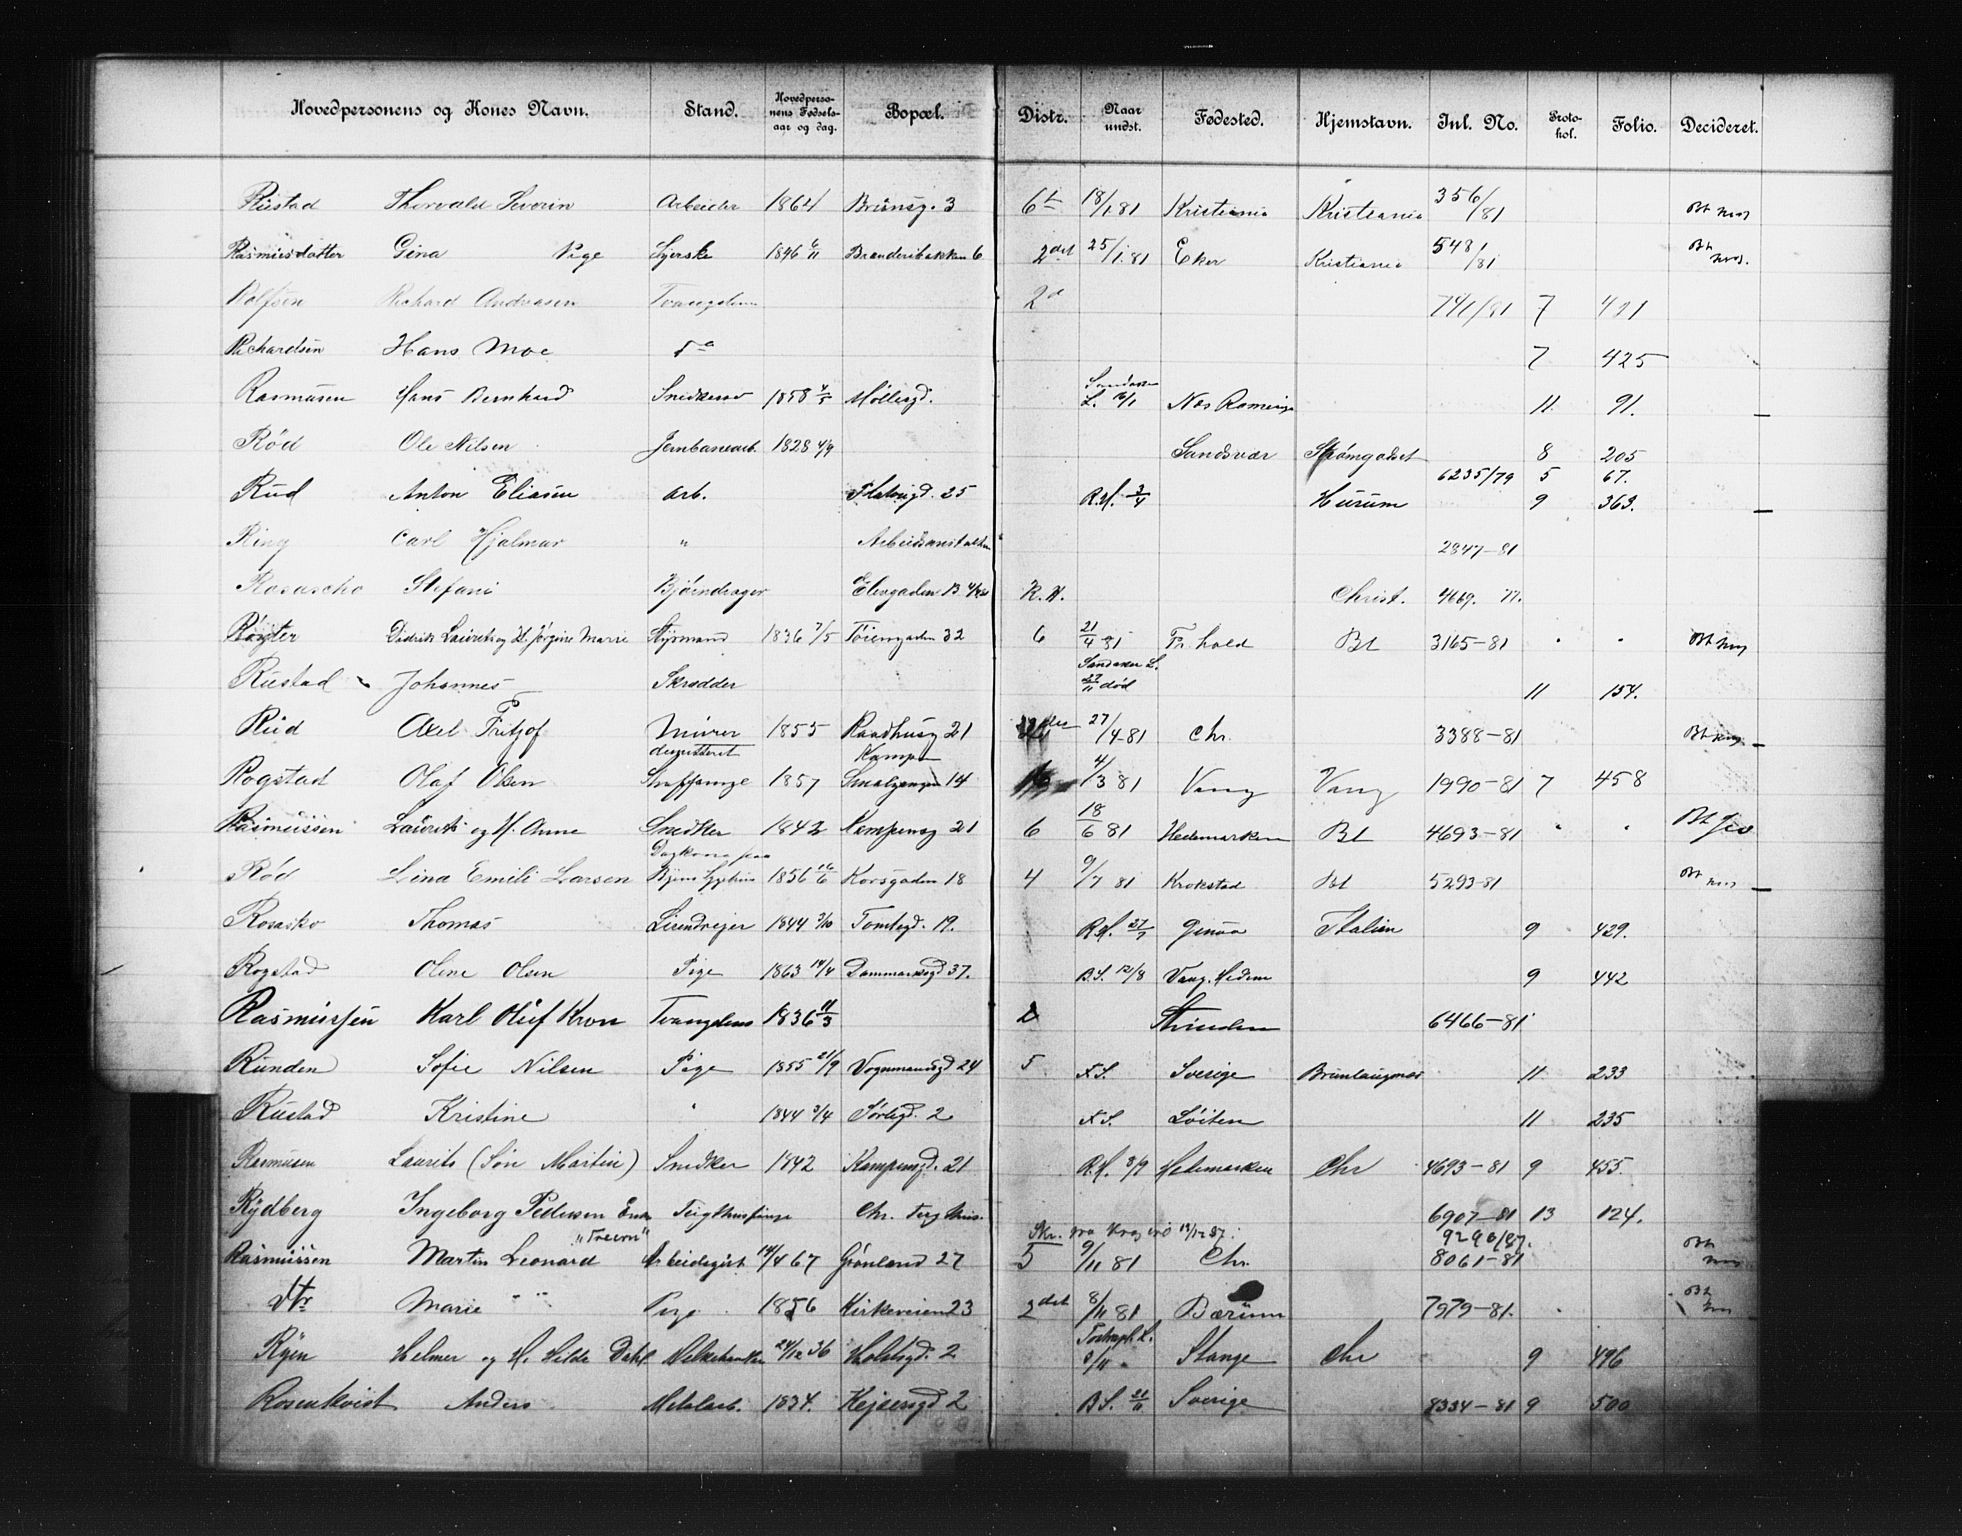 Hovedpersonens og Kones Navn. Stand. Hovedpersonens Fødselsaar og dag. Bopæl. Distr. Naar undst. Fødested. Hjemstavn. Inl. No. Protokol. Folio. Decideret.
Rustad Thorvald Severin Arbeider 1864 Brunsg. 3 6te 18/1 81 Kristiania Kristiania 356/81 Bt
Rasmusdatter Gina Pige Syerske 1846 6/11 Brænderibakken 6 2det 25/1 81 Eker Kristiania 548/81 Bt
Rolfsen Richard Andreasen Tvangslem 2d 741/81 7 421
Richardsen Hans Moe do 7 425
Rasmusen Hans Bernhard Snedkersv 1858 4/5 Møllergd. L. 16/1 Nes Romerige 11 91. —
Rød Ole Nilsen Jernbanearb. 1828 4/9 Sandsvær Strømgodset 8 205
Rud Anton Eliasen Arb. Platousgd. 25 R.H. 3/4 Hurum 6235/79 5 67.
9 363. —
Ring Carl Hjalmar " Arbeidsanstalten 2847-81
Rosascho Stefano Bjørndrager Elvegaden 13 R.H. Christ. 4669. 77.
Røyter Didrik Lauretz og H. Jørgine Marie Styrmand 1836 7/5 Tøiengaden 32 6 21/4 81 Fr.hald Bt 3165-81 " " Bt
Rustad Johannes Skrædder Sandaker L. 27/11 død 11 154.
Rud Axel Fritjof Murer 1855 Raadhusg 21 27/4-81 Chr. 3388-81 Bt —
Rogstad Olaf Olsen Straffange 1857 Kampen Smalgangen 14 4/3 81 Vang Vang 1990-81 7 458
Rasmussen Laurits og H. Anne Snedker 1842 Kampensg 21 6 18/6 81 Hedemarken Bt 4693-81 " " Bt
Rød Lina Emilie Larsen 1856 16/6 Korsgaden 18 4 9/7 81 Krokstad Bt 5293-81 Bt —
Rosasko Thomas Liredreier 1844 3/10 Tomtegd. 19. R.H. 27/7 Genua Italien 9 429.
Rogstad Oline Olsen Pige 1863 14/4 Dammarksgd 37. B.S. 12/8 Vang. Hedem 9 442
Rasmussen Karl Oluf Kron Tvangslem 1836 11/3 2 Strinden 6466-81
Runden Sofie Nilsen Pige 1855 21/9 Vognmansgd 24 5 F.S. Sverige Brunlaugnes 11 233
Rustad Kristine " 1844 3/4 Sørligd. 2 F.S. Løiten 11 235
Rasmusen Laurits (Søn Martin) Snedker 1842 Kampensgd. 21 R.H. 8/9 Hedemarken Chr 4693-81 9 455
Rydberg Ingeborg Pedersen Enke Tugthusfange Chr. Tugthus. 6907-81 13 124.
Skr. fra Kragerø 13/12 87. 9290/87.
Rasmussen Martin Leonard Arbeidsgut 14/4 67 Grønland 27 5 9/11 81 Chr. 8061-81 Bt
dtr Marie " " Pige 1856 Kirkeveien 23 2det 8/11 81 Bærum 7979-81. Bt
Ryen Helmer og H. Hilda Dahl Melkehandler 24/12 36 Holstsgd. 2 8/11 Stange Chr 9 496
Rosenkvist Anders Metalarb. 1834. Kejsersgd 2 B.S. 21/11 Sverige 8334-81 9 500